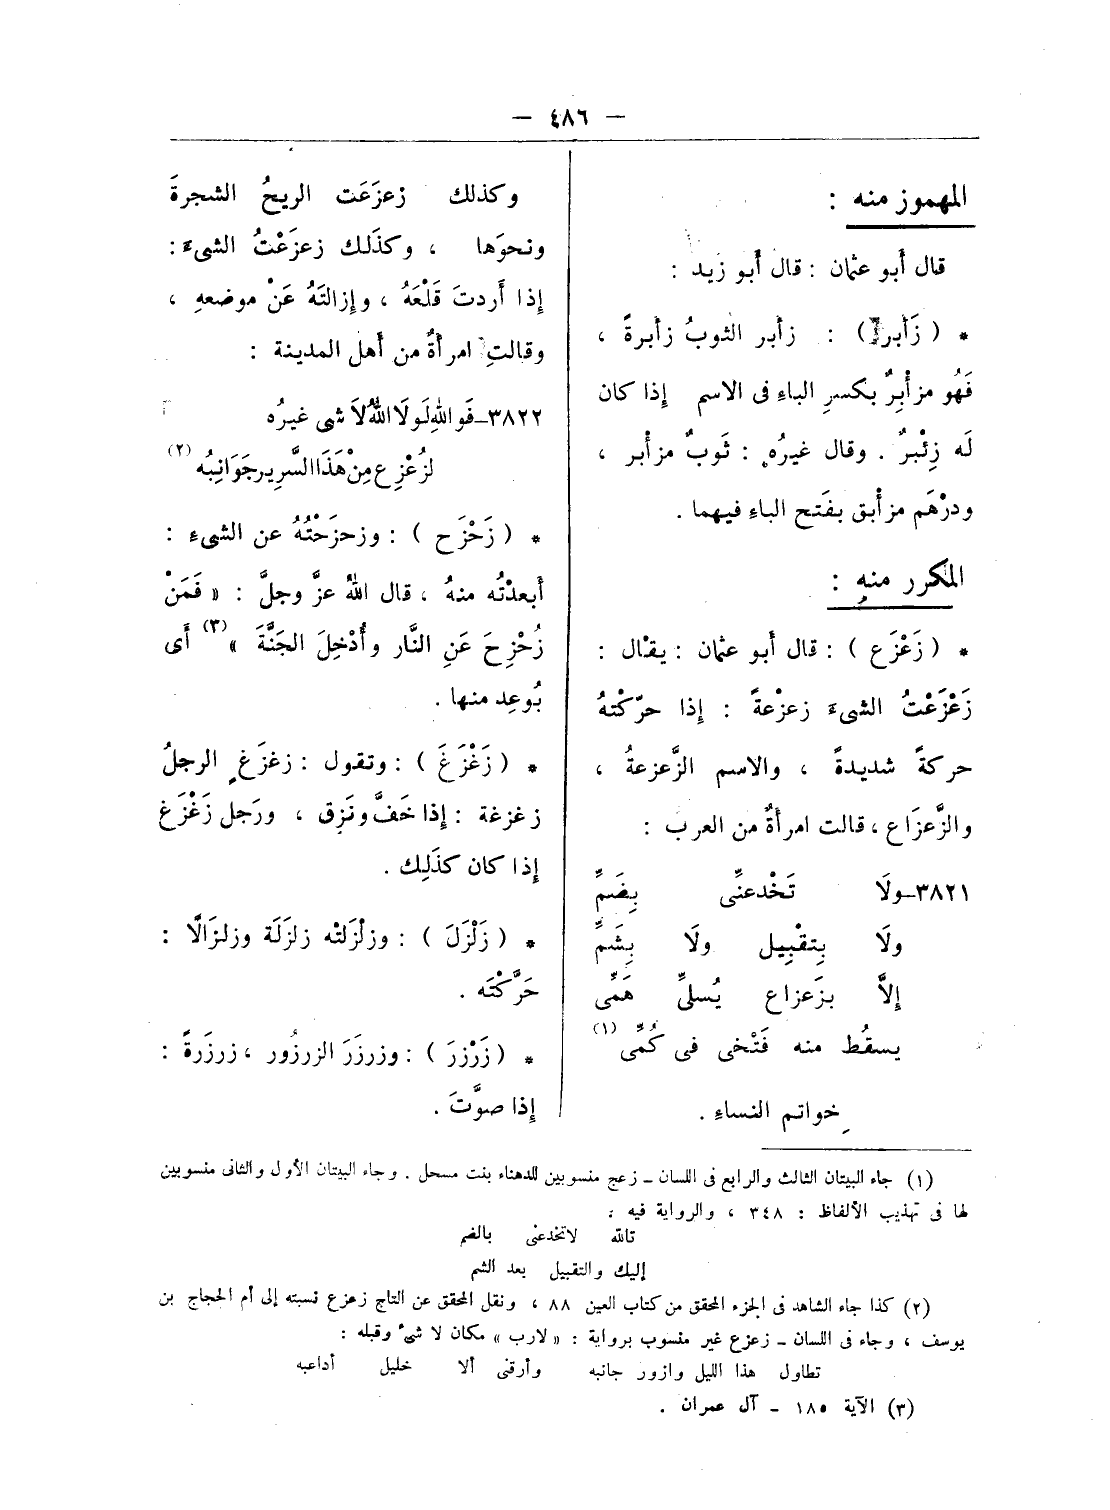 — ٤٨٦ —
المهموز منه :
قال أبو عثمان : قال أبو زيد :
* ( زَأبر ) : زأبر الثوبُ زأبرةً ،
فَهُو مزأْبِرٌ بكسرِ الباءِ فى الاسم إذا كان
لَه زِئْبرٌ . وقال غيرُه : ثَوبٌ مزأْبر ،
ودرْهَم مزأْبق بفَتح الباءِ فيهما .
المكرر منه :
* ( زَعْزَع ) : قال أَبو عثمان : يقال :
زَعْزَعْتُ الشىءَ زعزعةً : إذا حرّكْتهُ
حركةً شديدةً ، والاسم الزَّعزعةُ ،
والزَّعزاع ، قالت امرأةٌ من العرب :
٣٨٢١ــ ولَا تَخْدعنِّى بِضَمِّ
ولَا بِتقْبِيل ولَا بِشَمِّ
إلَّا بزَعزاع يُسلىِّ هَمِّى
يسقُط منه فَتْخى فى كُمِّى (١)
خواتم النساءِ .
وكذلك زعزَعَت الريحُ الشجرةَ
ونحوَها ، وكذَلك زعزَعْتُ الشىءَ :
إذا أَردتَ قَلْعَهُ ، وإزالتَهُ عَنْ موضعهِ ،
وقالتِ امرأةٌ من أَهل المدينة :
٣٨٢٢ــ فَواللهِ لَولَا اللهُ لَا شى غيرُه
لزُعْزِع مِنْ هَذَا السَّرِير جَوَانِبُه (٢)
* ( زَحْزَح ) : وزحزَحْتُهُ عن الشىءِ :
أَبعدْتُه منهُ ، قال اللهُ عزَّ وجلَّ : « فَمَنْ
زُحْزِحَ عَنِ النَّار وأُدْخِلَ الجَنَّةَ » (٣) أَى
بُوعِد منها .
* ( زَغْزَغَ ) : وتقول : زغزَغ الرجلُ
زغزغة : إذا خَفَّ ونَزِق ، ورَجل زَغْزَغ
إذا كان كذَلِك .
* ( زَلْزَلَ ) : وزلْزَلتْه زلزَلَة وزلزالًا :
حَرَّكْتَه .
* ( زَرْزرَ ) : وزرزَرَ الزرزُور ، زرزرةً :
إذا صوَّتَ .
(١) جاء البيتان الثالث والرابع فى اللسان ــ زعج منسوبين للدهناء بنت مسحل . وجاء البيتان الأول والثانى منسوبين
لها فى تهذيب الألفاظ : ٣٤٨ ، والرواية فيه :
تالله لا تخدعنى بالضم
إليك والتقبيل بعد الشم
(٢) كذا جاء الشاهد فى الجزء المحقق من كتاب العين ٨٨ ، ونقل المحقق عن التاج زعزع نسبته إلى أم الحجاج بن
يوسف ، وجاء فى اللسان ــ زعزع غير منسوب برواية : « لارب » مكان لا شىء وقبله :
تطاول هذا الليل وازور جانبه وأرقنى ألا خليل أداعبه
(٣) الآية ١٨٥ ــ آل عمران .